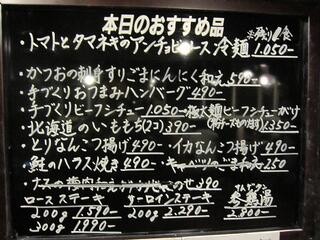 本日のおすすめ品
・トマトとタマネギのアンチョビソース冷麺 1.050-
・かつおの刺身すりごまにんにく和え 590-
・手づくりおつまみハンバーグ 490-
・手づくりビーフシチュー 1.050- 極太麺ビーフシチューがけ 1.350-
・北海道のいももち(2コ) 390-
・とりなんこつ揚げ 490- ・イカなんこつ揚げ 490-
・鮭のハラス焼き 490- ・キャベツのごま和え 250
のせ 390
ロースステーキ サーロインステーキ 参鶏湯
200g 1.590- 200g 2.290- 2.800-
300g 1.990